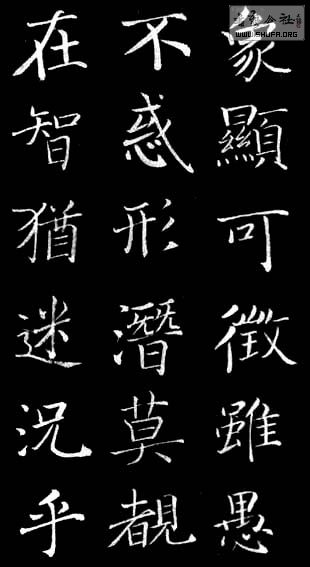 象顯可徵雖愚
不惑形潛莫覩
在智猶迷况乎
WWW.SHUFA.ORG